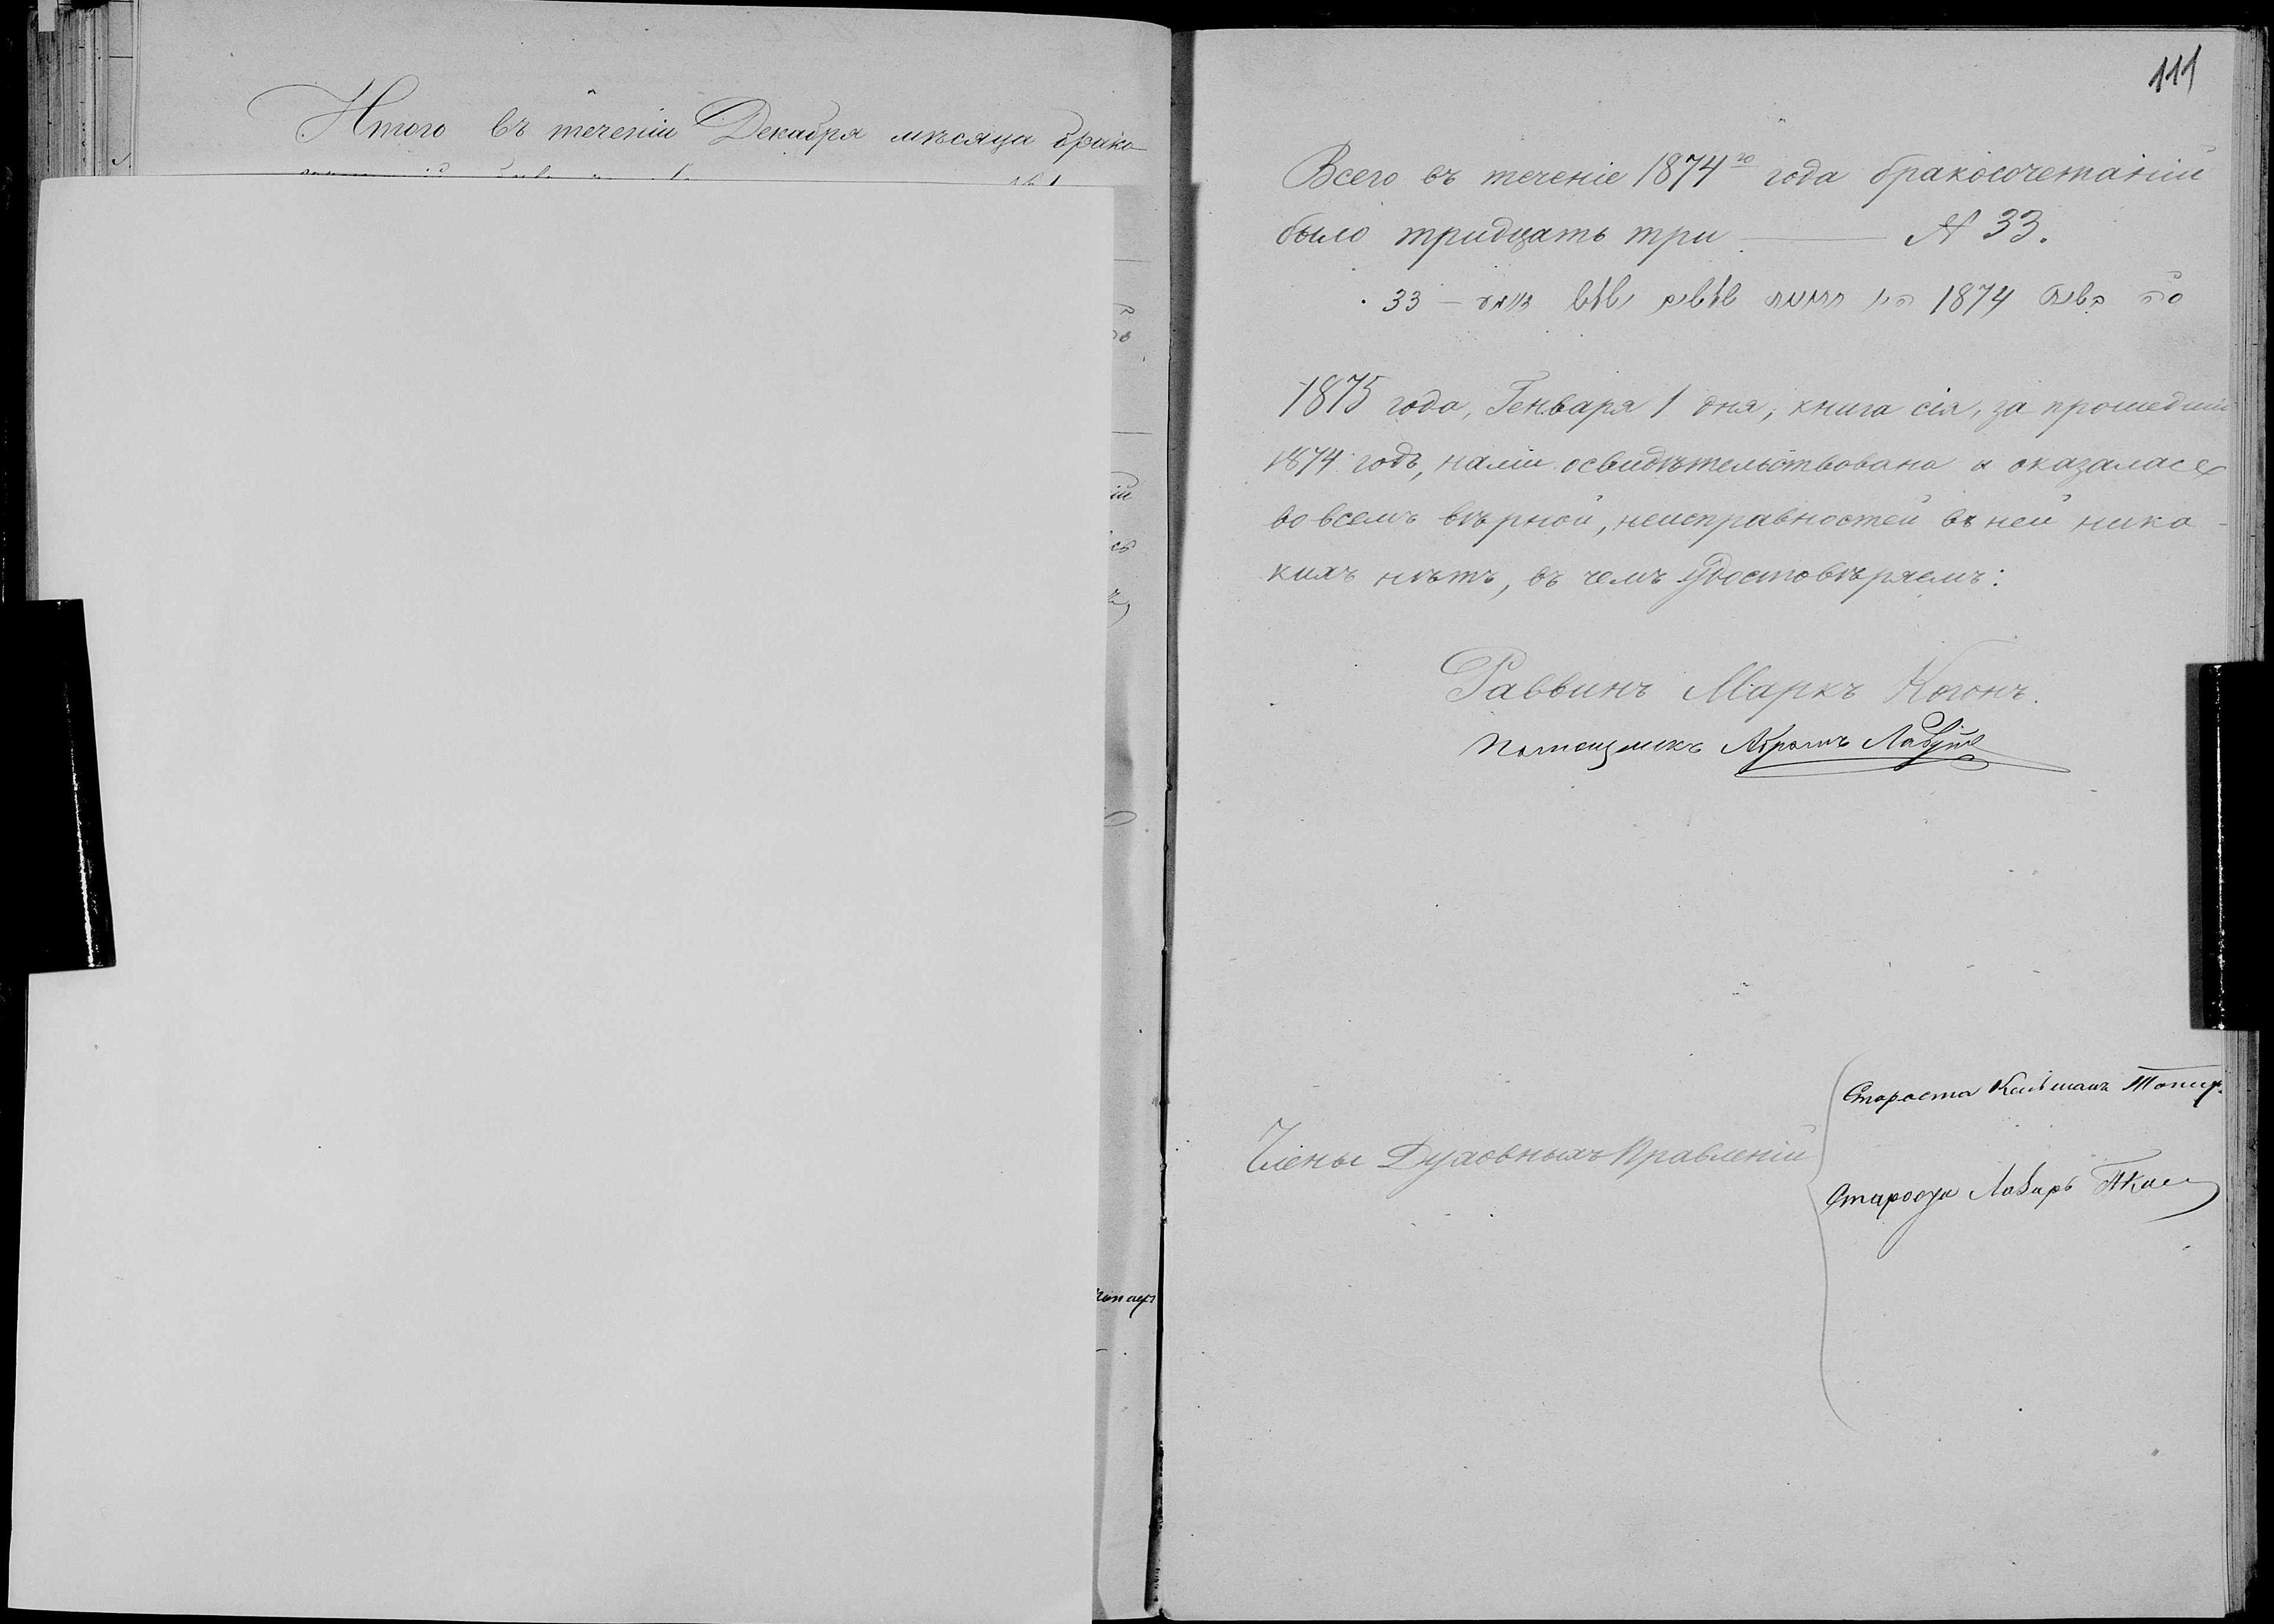 Итого въ теченіи Декабря мѣсяца брако-
111
Всего въ теченіе 1874го года бракосочетаній
было тридцать три — № 33.
1874
33 —
1875 года, Генваря 1 дня, книга сія, за прошедшій
1874 годъ, нами освидѣтельствована и оказалась
во всемъ вѣрной, неисправностей въ ней ника-
кихъ нѣтъ, въ чемъ удостовѣряемъ:
Раввинъ Маркъ Когонъ.
Помощникъ Абрамъ
Староста
Члены Духовныхъ Правленій
Староста Лазарь